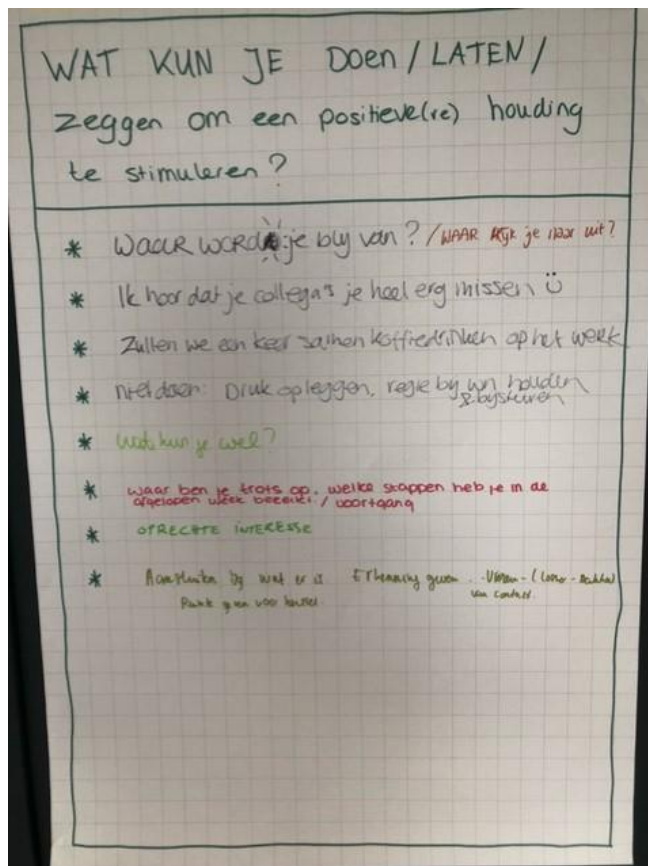 WAT KUN JE Doen / LATEN /
zeggen om een positieve(re) houding
te stimuleren?
* WAAR WORD je bly van? / WAAR kyk je naar uit?
* Ik hoor dat je collega's je heel erg missen
* Zullen we een keer samen koffiedrinken op het werk
* Niet doen: Druk opleggen, regie by wn houden
& bysturen
* Wat kun je wel?
* waar ben je trots op. welke stappen heb je in de
afgelopen week bereikt / voortgang
* OPRECHTE INTERESSE
* Aansluiten by wat er is Erkenning geven
Ruimte geven voor herstel van contact.